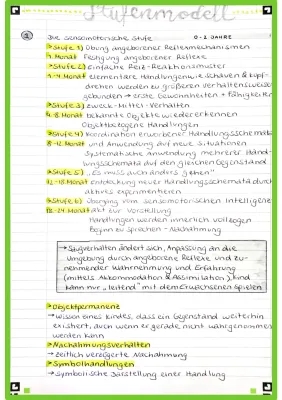 Stufenmodell
① Die sensomotorische Stufe 0-2 JAHRE
>Stufe 1) Übung angeborener Reflexmechanismen
1. Monat Festigung angeborener Reflexe
>Stufe 2) Einfache Reiz-Reaktionsmuster
1-4 Monat elementare Handlungen wie schauen & Kopf-
drehen werden zu größeren Verhaltensweisen
gebunden → erste Gewohnheiten + Fähigkeiten
>Stufe 3) Zweck-Mittel-Verhalten
4-8 Monat bekannte Objekte wiedererkennen
Objektbezogene Handlungen
>Stufe 4) Koordination erworbener Handlungsschemata
8-12 Monat und Anwendung auf neue Situationen
Systematische Anwendung mehrerer Hand-
lungsschemata auf den gleichen Gegenstand
>Stufe 5) "Es muss auch anders gehen"
12-18 Monat Entdeckung neuer Handlungsschemata durch
aktives experimentieren
>Stufe 6) Übergang vom sensomotorischen Intelligenz-
18-24 Monat akt zur Vorstellung
Handlungen werden innerlich vollzogen
Beginn zu sprechen - Nachahmung
→ Saugverhalten ändert sich, Anpassung an die
Umgebung durch angeborene Reflexe und zu-
nehmender Wahrnehmung und Erfahrung
(mittels Akkommodation & Assimilation), Kind
kann nur "leitend" mit dem Erwachsenen spielen
>Objektpermanenz
→ Wissen eines Kindes, dass ein Gegenstand weiterhin
existiert, auch wenn er gerade nicht wahrgenommen
werden kann
>Nachahmungsverhalten
→ zeitlich verzögerte Nachahmung
>Symbolhandlungen
→ symbolische Darstellung einer Handlung